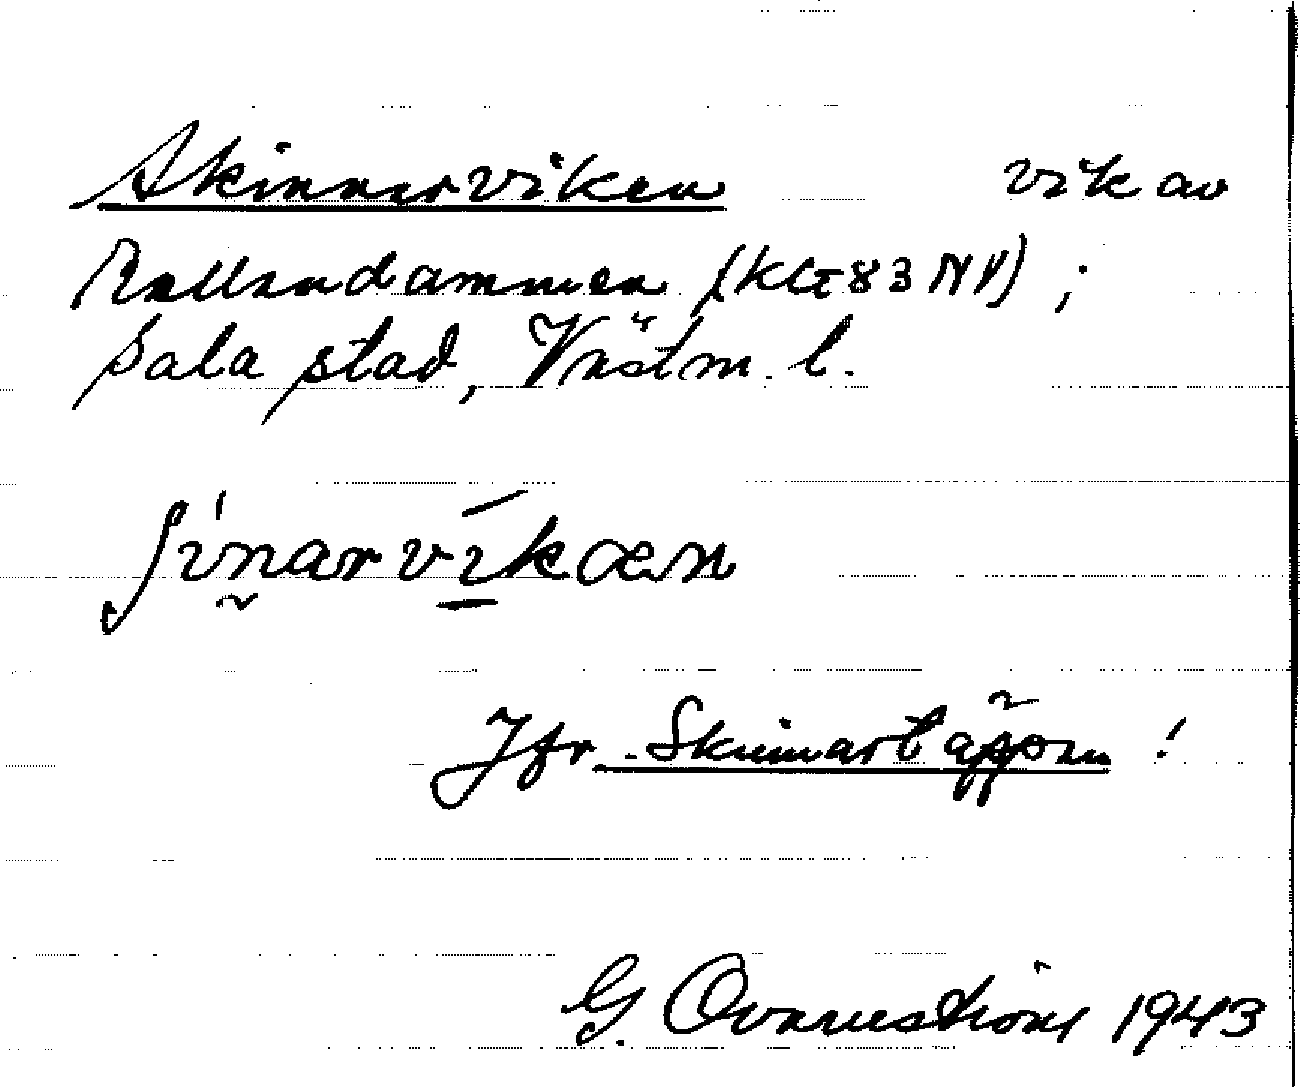 Skinnarviken vik av
Hallandammen (Kbl 83 NV) ;
Sala stad, Västm. l.
ʃinarvikæn
Jfr. Skinnartäppan !
G. Qvarnström 1943